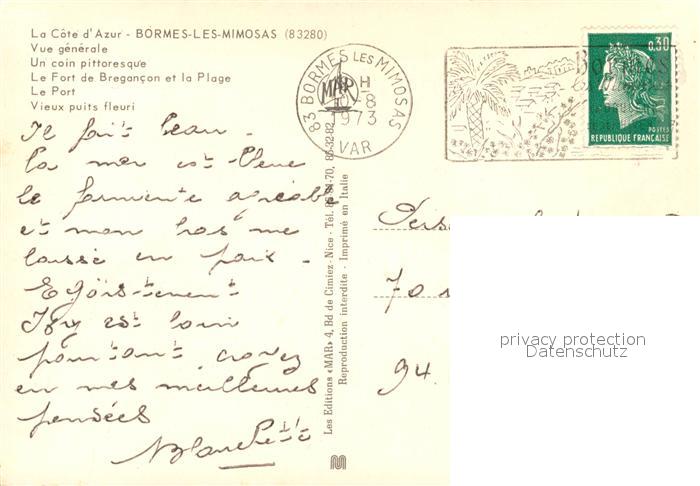 La Côte d'Azur - BORMES-LES-MIMOSAS (83280)
Vue générale
Un coin pittoresque
Le Fort de Bregançon et la Plage
Le Port
Vieux puits fleuri
83 BORMES LES MIMOSAS
H
-8
1973
VAR
MAR
Bormes
0,30
POSTES
REPUBLIQUE FRANÇAISE
Il fait beau -
la mer est bleue
le farniente agréable
et mon bas me
laisse en paix -
Egoïstement
Ivry est loin
pourtant croyez
en mes meilleures
pensées
Blanchette
Les Editions «MAR» 4, Bd de Cimiez - Nice - Tél.
Reproduction interdite - Imprimé en Italie
70
94.
privacy protection
Datenschutz